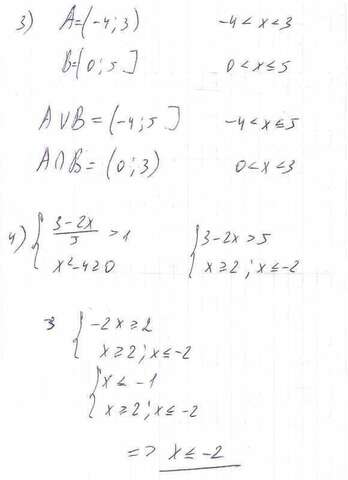 3) A=(-4;3) -4<x<3
B=(0;5] 0<x≤5
A∪B=(-4;5] -4<x≤5
A∩B=(0;3) 0<x<3
4) { (3-2x)/5 >1 { 3-2x>5
x²-4≥0 x≥2; x≤-2
{ -2x≥2
x≥2; x≤-2
{ x≤ -1
x≥2; x≤-2
=> x≤-2